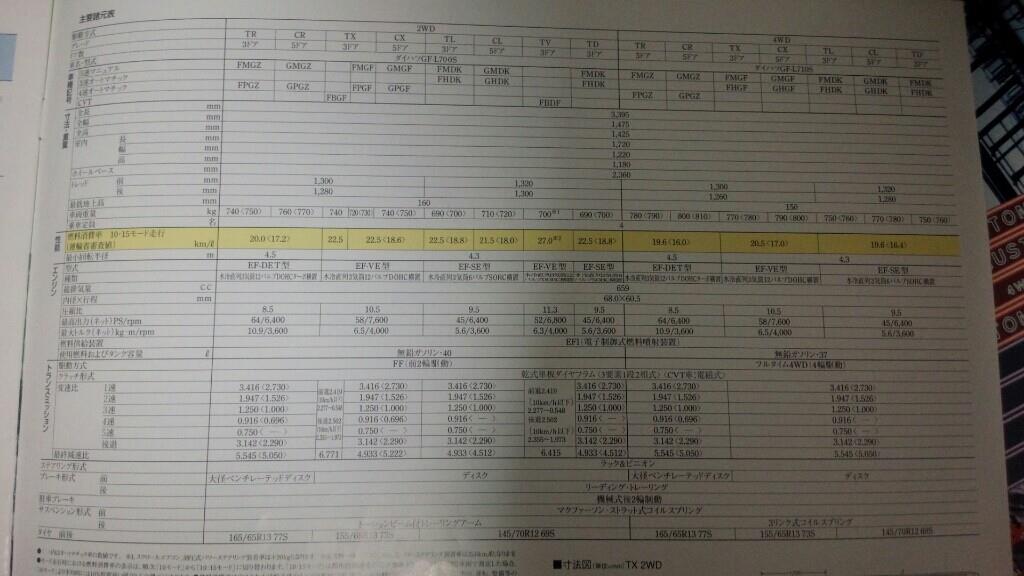 主要諸元表
駆動方式 2WD 4WD
グレード TR CR TX CX TL CL TV TD TR CR TX CX TL CL TD
ドア数 3ドア 5ドア 3ドア 5ドア 3ドア 5ドア 3ドア 5ドア 3ドア 5ドア 3ドア 5ドア 3ドア 5ドア
車名・型式 ダイハツGF-L700S ダイハツGF-L710S
5速マニュアル FMGZ GMGZ FMGF GMGF FMDK GMDK FMDK FMGZ GMGZ FMGF GMGF FMDK GMDK FMDK
3速オートマチック FHDK GHDK FHDK FHGF GHGF FHDK GHDK FHDK
4速オートマチック FPGZ GPGZ FPGF GPGF FPGZ GPGZ
CVT FBGF FBDF
車種記号・寸法・重量
全長 mm 3,395
全幅 mm 1,475
全高 mm 1,425
室内 長 mm 1,720
幅 mm 1,220
高 mm 1,180
ホイールベース mm 2,360
トレッド 前 mm 1,300 1,320 1,300 1,320
後 mm 1,280 1,300 1,260 1,280
最低地上高 mm 160 150
車両重量 kg 740〈750〉 760〈770〉 740 720〈730〉 740〈750〉 690〈700〉 710〈720〉 700※1 690〈700〉 780〈790〉 800〈810〉 770〈780〉 790〈800〉 750〈760〉 770〈780〉 750〈760〉
乗車定員 名 4
性能
燃料消費率 10・15モード走行
(運輸省審査値) km/ℓ 20.0〈17.2〉 22.5 22.5〈18.6〉 22.5〈18.8〉 21.5〈18.0〉 27.0※2 22.5〈18.8〉 19.6〈16.0〉 20.5〈17.0〉 19.6〈16.4〉
最小回転半径 m 4.5 4.3 4.5 4.3
エンジン
型式 EF-DET型 EF-VE型 EF-SE型 EF-VE型 EF-SE型 EF-DET型 EF-VE型 EF-SE型
種類 水冷直列3気筒12バルブDOHCターボ横置 水冷直列3気筒12バルブDOHC横置 水冷直列3気筒6バルブSOHC横置
総排気量 CC 659
内径×行程 mm 68.0×60.5
圧縮比 8.5 10.5 9.5 11.3 9.5 8.5 10.5 9.5
最高出力(ネット)PS/rpm 64/6,400 58/7,600 45/6,400 52/6,800 45/6,400 64/6,400 58/7,600 45/6,400
最大トルク(ネット)kg・m/rpm 10.9/3,600 6.5/4,000 5.6/3,600 6.3/4,000 5.6/3,600 10.9/3,600 6.5/4,000 5.6/3,600
燃料供給装置 EFI(電子制御式燃料噴射装置)
使用燃料およびタンク容量 ℓ 無鉛ガソリン・40 無鉛ガソリン・37
トランスミッション
駆動方式 FF(前2輪駆動) フルタイム4WD(4輪駆動)
クラッチ形式 乾式単板ダイヤフラム〈3要素1段2相式〉(CVT車:電磁式)
変速比 1速 3.416〈2.730〉 前進2.419 3.416〈2.730〉 3.416〈2.730〉 前進2.419 3.416〈2.730〉 3.416〈2.730〉 3.416〈2.730〉
2速 1.947〈1.526〉 1.947〈1.526〉 1.947〈1.526〉 (10km/h以下) 1.947〈1.526〉 1.947〈1.526〉 1.947〈1.526〉
3速 1.250〈1.000〉 2.277~0.548 1.250〈1.000〉 1.250〈1.000〉 2.277~0.548 1.250〈1.000〉 1.250〈1.000〉 1.250〈1.000〉
4速 0.916〈0.696〉 後退2.502 0.916〈0.696〉 0.916〈 ― 〉 後退2.502 0.916〈 ― 〉 0.916〈0.696〉 0.916〈 ― 〉
5速 0.750〈 ― 〉 0.750〈 ― 〉 0.750〈 ― 〉 (10km/h以下) 0.750〈 ― 〉 0.750〈 ― 〉 0.750〈 ― 〉
後退 3.142〈2.290〉 2.355~1.973 3.142〈2.290〉 3.142〈2.290〉 2.355~1.973 3.142〈2.290〉 3.142〈2.290〉 3.142〈2.290〉
最終減速比 5.545〈5.050〉 6.771 4.933〈5.222〉 4.933〈4.512〉 6.415 4.933〈4.512〉 5.545〈5.050〉 5.545〈5.050〉
ステアリング形式 ラック&ピニオン
ブレーキ形式 前 大径ベンチレーテッドディスク ディスク 大径ベンチレーテッドディスク ディスク
後 リーディング・トレーリング
駐車ブレーキ 機械式後2輪制動
サスペンション形式 前 マクファーソン・ストラット式コイルスプリング
後 トーションビーム付トレーリングアーム 3リンク式コイルスプリング
タイヤ 前後 165/65R13 77S 155/65R13 73S 145/70R12 69S 165/65R13 77S 155/65R13 73S 145/70R12 69S
■寸法図(単位:mm) TX 2WD